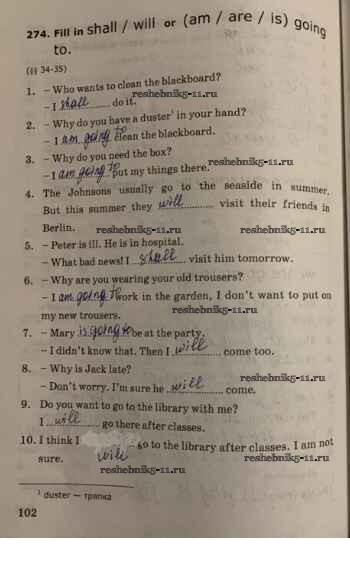 274. Fill in shall / will or (am / are / is) going
to.
(§§ 34-35)
1. – Who wants to clean the blackboard?
reshebnik5-11.ru
– I shall do it.
2. – Why do you have a duster¹ in your hand?
– I am going to clean the blackboard.
3. – Why do you need the box?
reshebnik5-11.ru
– I am going to put my things there.
4. The Johnsons usually go to the seaside in summer.
But this summer they will visit their friends in
Berlin. reshebnik5-11.ru reshebnik5-11.ru
5. – Peter is ill. He is in hospital.
– What bad news! I shall visit him tomorrow.
6. – Why are you wearing your old trousers?
– I am going to work in the garden, I don't want to put on
my new trousers. reshebnik5-11.ru
7. – Mary is going to be at the party.
– I didn't know that. Then I will come too.
8. – Why is Jack late?
reshebnik5-11.ru
– Don't worry. I'm sure he will come.
9. Do you want to go to the library with me?
I will go there after classes.
10. I think I will go to the library after classes. I am not
sure. reshebnik5-11.ru
reshebnik5-11.ru
¹ duster — тряпка
102